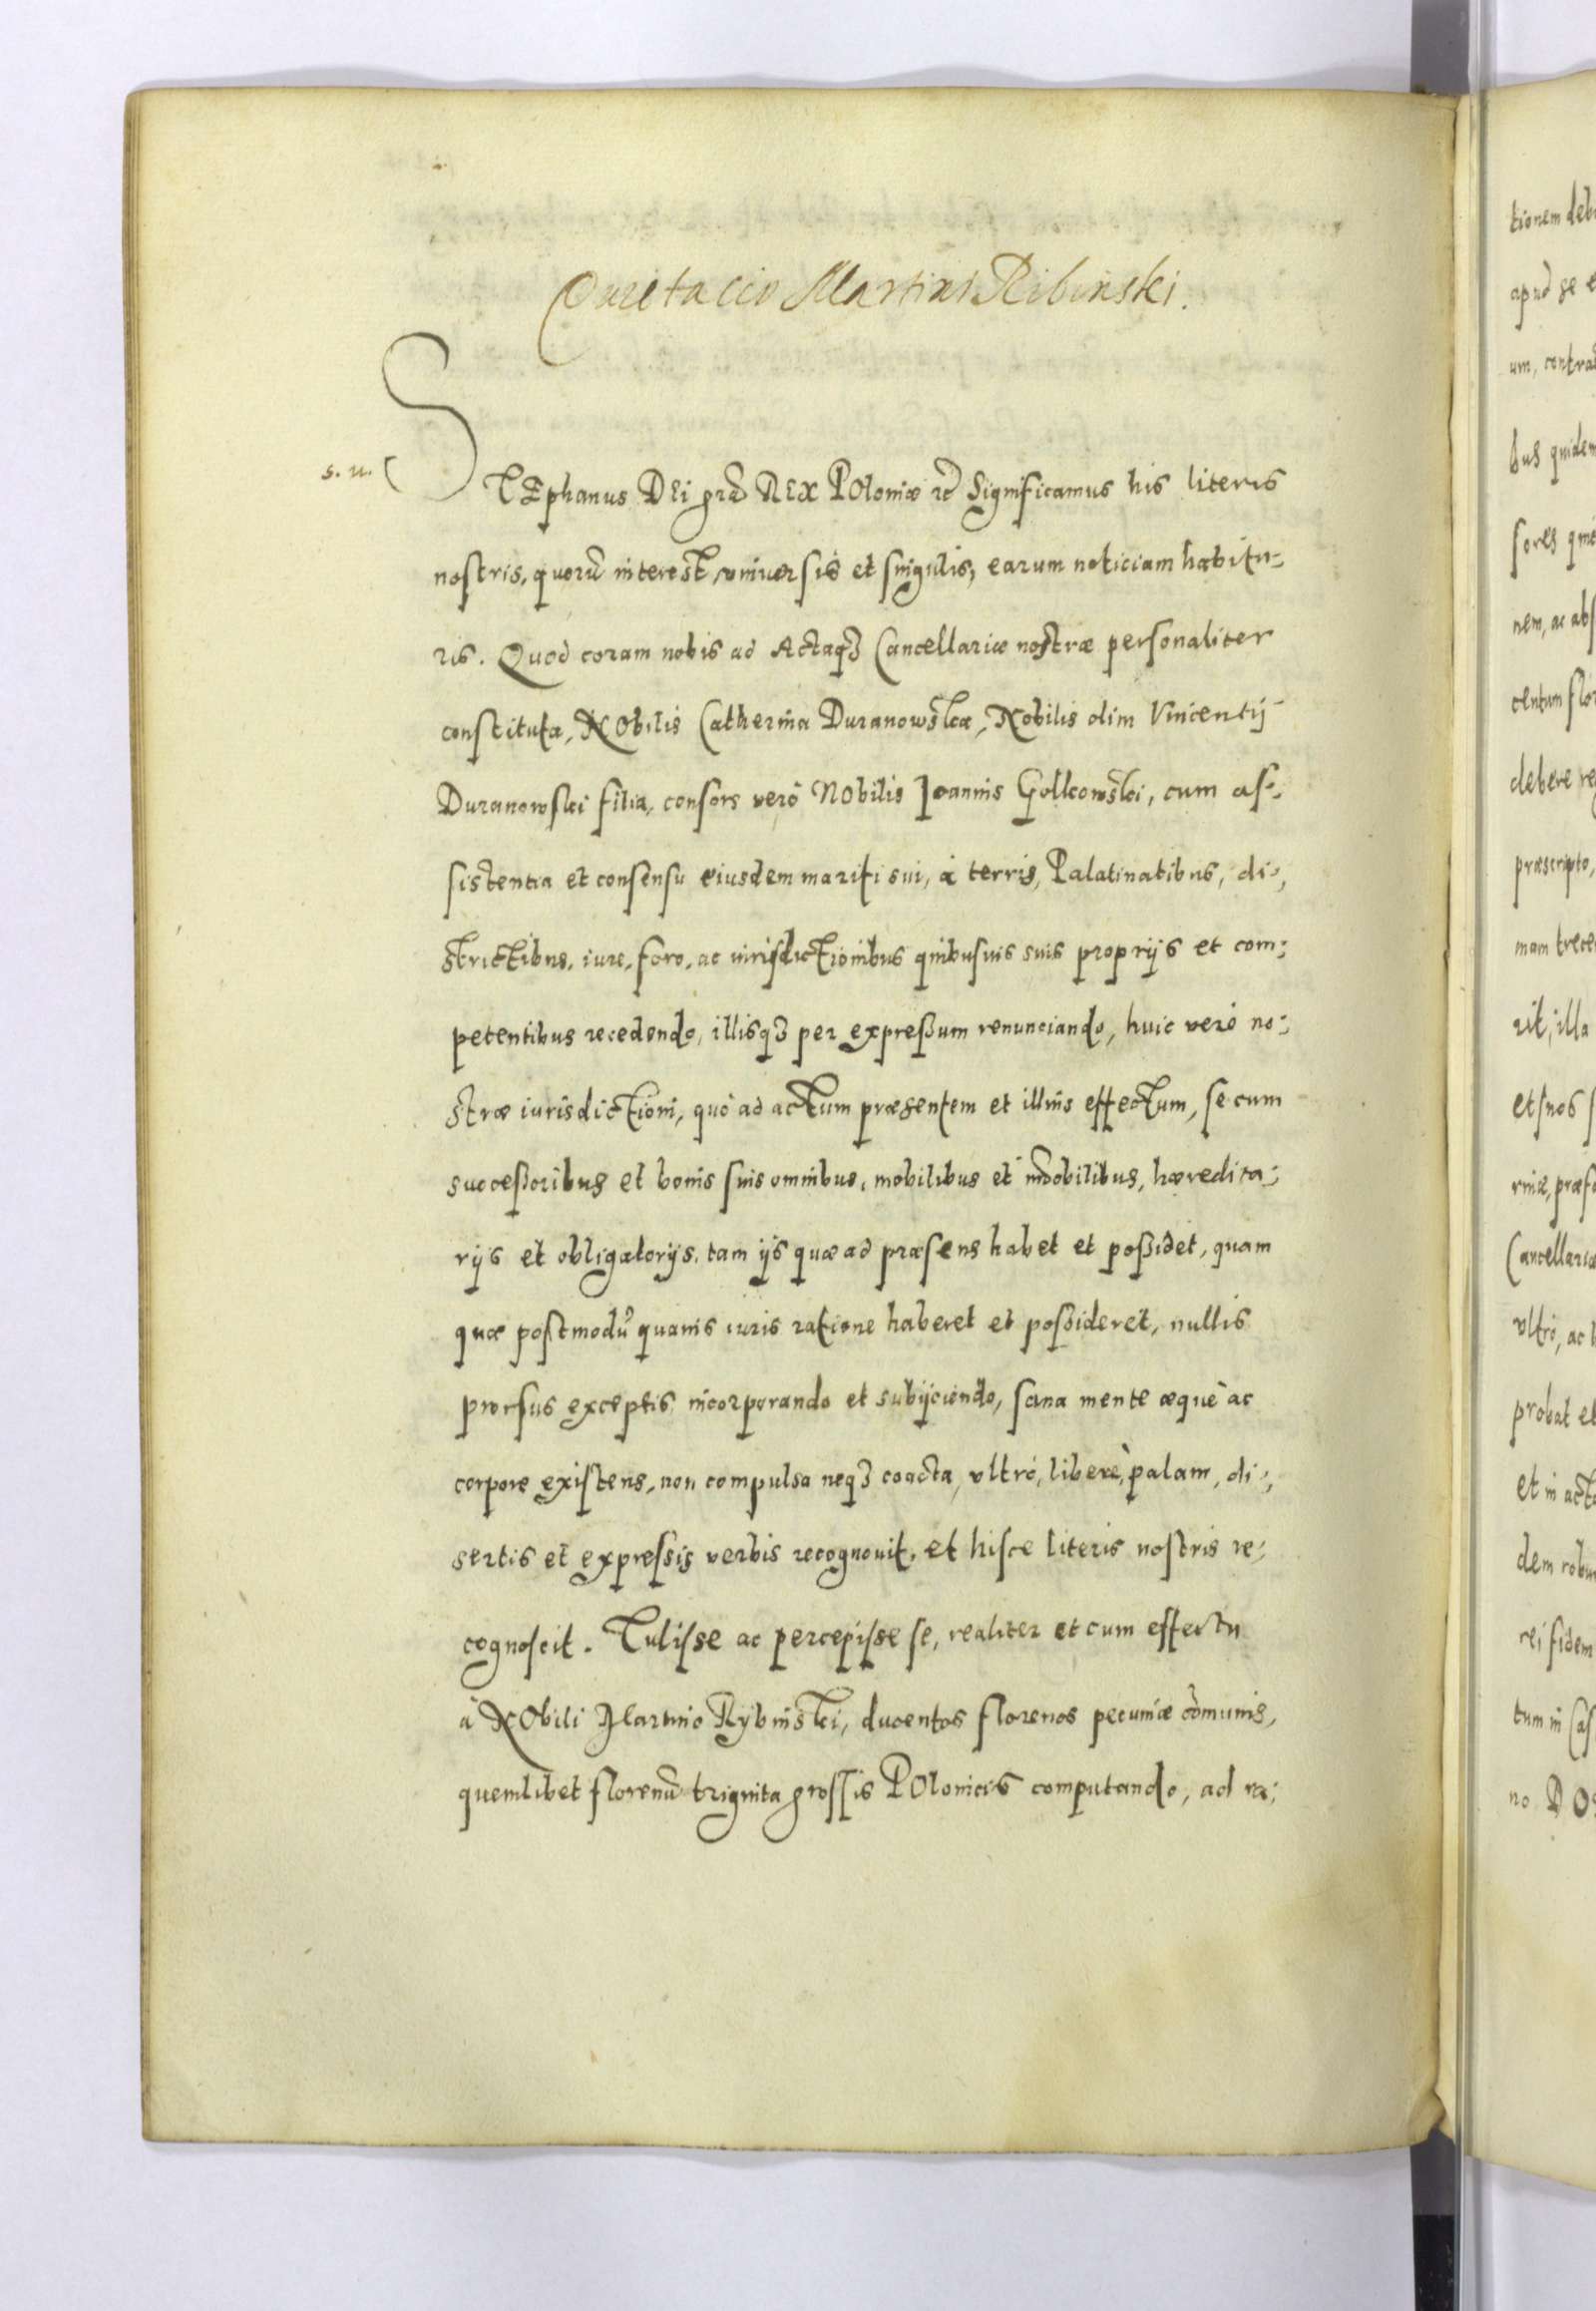 Quietacio Martini Ribinski.
s. u.
STEphanus DEi grã REX POloniæ ꝛc̃ Significamus his literis
nostris, quorũ interest, vniuersis et singulis, earum noticiam habitu-
ris. Quod coram nobis ad Actaqꝫ Cancellariæ nostræ personaliter
constituta, NObilis Catherina Duranowska, Nobilis olim Vincentij
Duranowski filia, consors verò NObilis Joannis Golkowski, cum as-
sistentia et consensu eiusdem mariti sui, à terris, Palatinatibus, di-
strictibus, iure, foro, ac iurisdictionibus quibusuis suis proprijs et com-
petentibus recedendo, illisqꝫ per expreßum renunciando, huic verò no-
stræ iurisdictioni, quò ad actum præsentem et illius effectum, se cum
succeßoribus et bonis suis omnibus, mobilibus et im̃obilibus, hæredita-
rijs et obligatorijs, tam ijs quæ ad præsens habet et poßidet, quam
quæ postmodũ quauis iuris ratione haberet et poßideret, nullis
prorsus exceptis incorporando et subijciendo, sana mente æquè ac
corpore existens, non compulsa neqꝫ coacta, vltrò, liberè, palam, di-
sertis et expressis verbis recognouit, et hisce literis nostris re-
cognoscit. Tulisse ac percepisse se, realiter et cum effectu
à NObili Martino Rybinski, ducentos florenos pecuniæ cõmunis,
quemlibet florenũ triginta grossis POlonicis computando, ad ra-
tionem deb
apud se e
um, contra
bus quidem
sores qui
nem, ac abs
centum flo
debere re
præscripto,
mam trece
rit, illa
et nos s
rinæ, præf
Cancellariæ
vltrò, ac l
probat et
et in act
dem robur
rei fidem
tum in Cas
no DO